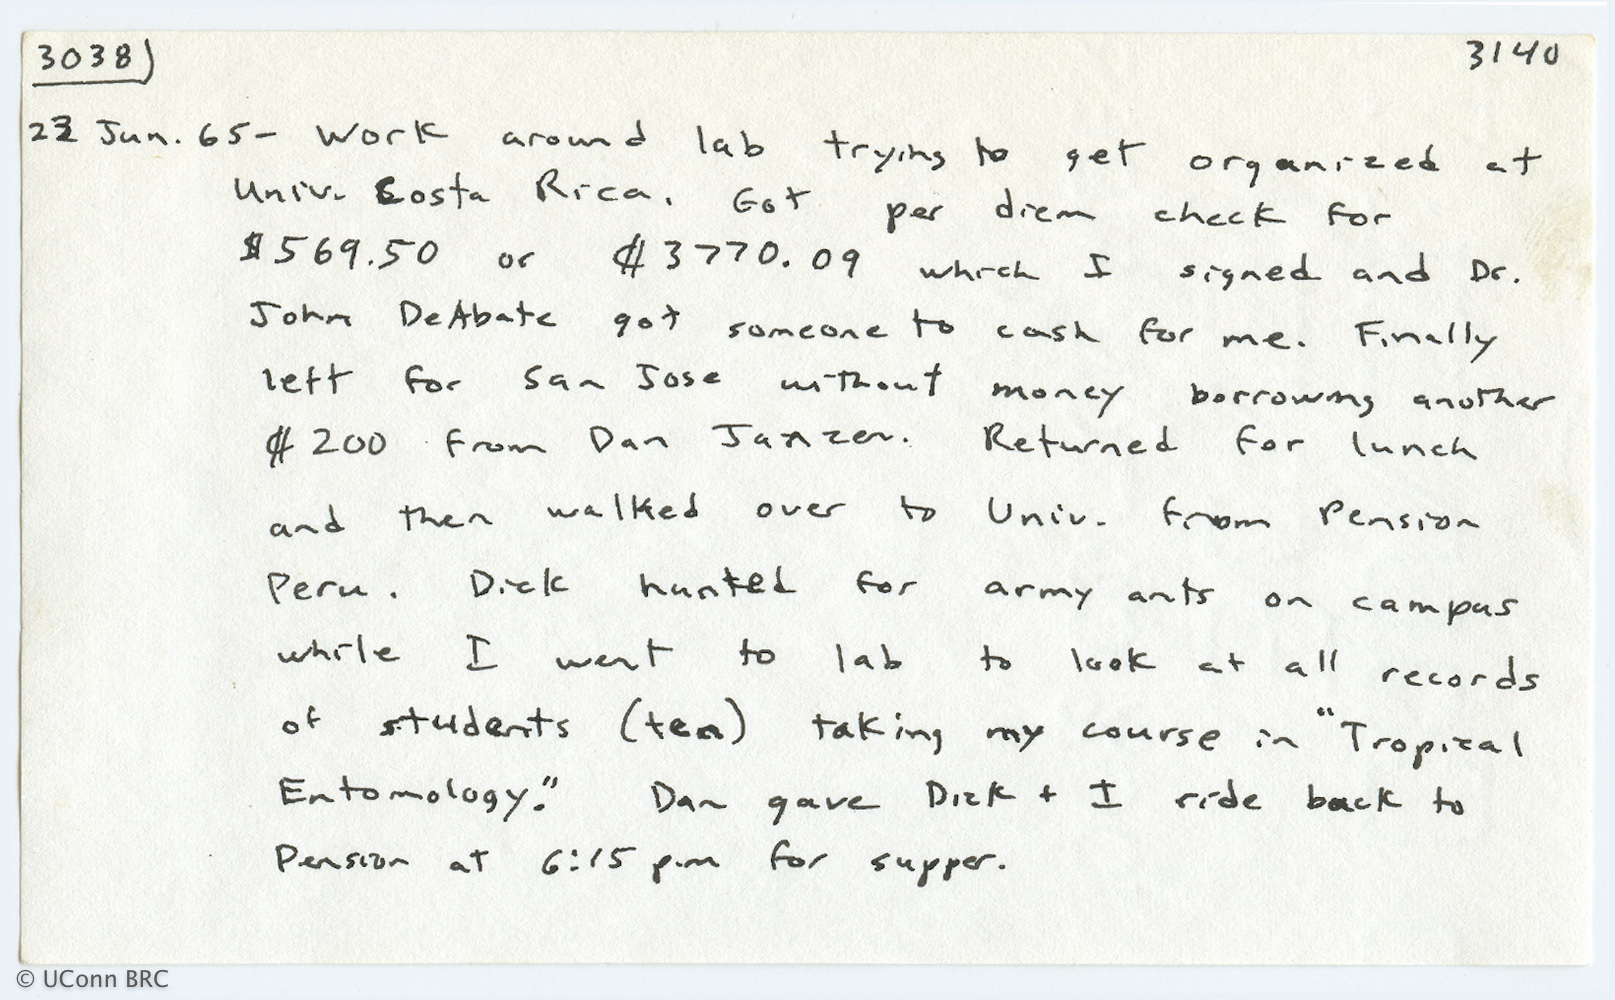 3038) 3140
22 Jun. 65- Work around lab trying to get organized at
Univ. Costa Rica. Got per diem check for
$569.50 or ₡3770.09 which I signed and Dr.
John DeAbate got someone to cash for me. Finally
left for San Jose without money borrowing another
₡200 from Dan Janzen. Returned for lunch
and then walked over to Univ. from Pension
Peru. Dick hunted for army ants on campus
while I went to lab to look at all records
of students (ten) taking my course in "Tropical
Entomology." Dan gave Dick + I ride back to
Pension at 6:15 p.m for supper.
© UConn BRC